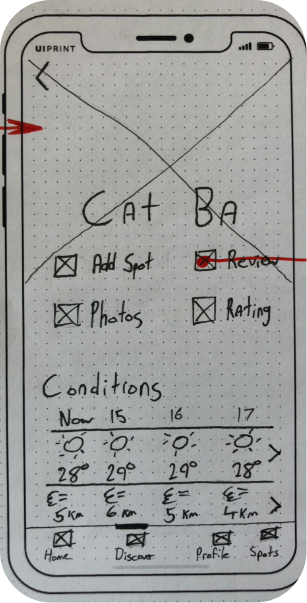 UIPRINT
CAt BA
Add Spot Review
Photos Rating
Conditions
Now 15 16 17
28° 29° 29° 28°
5 Km 6 Km 5 Km 4 Km
Home Discover Profile Spots